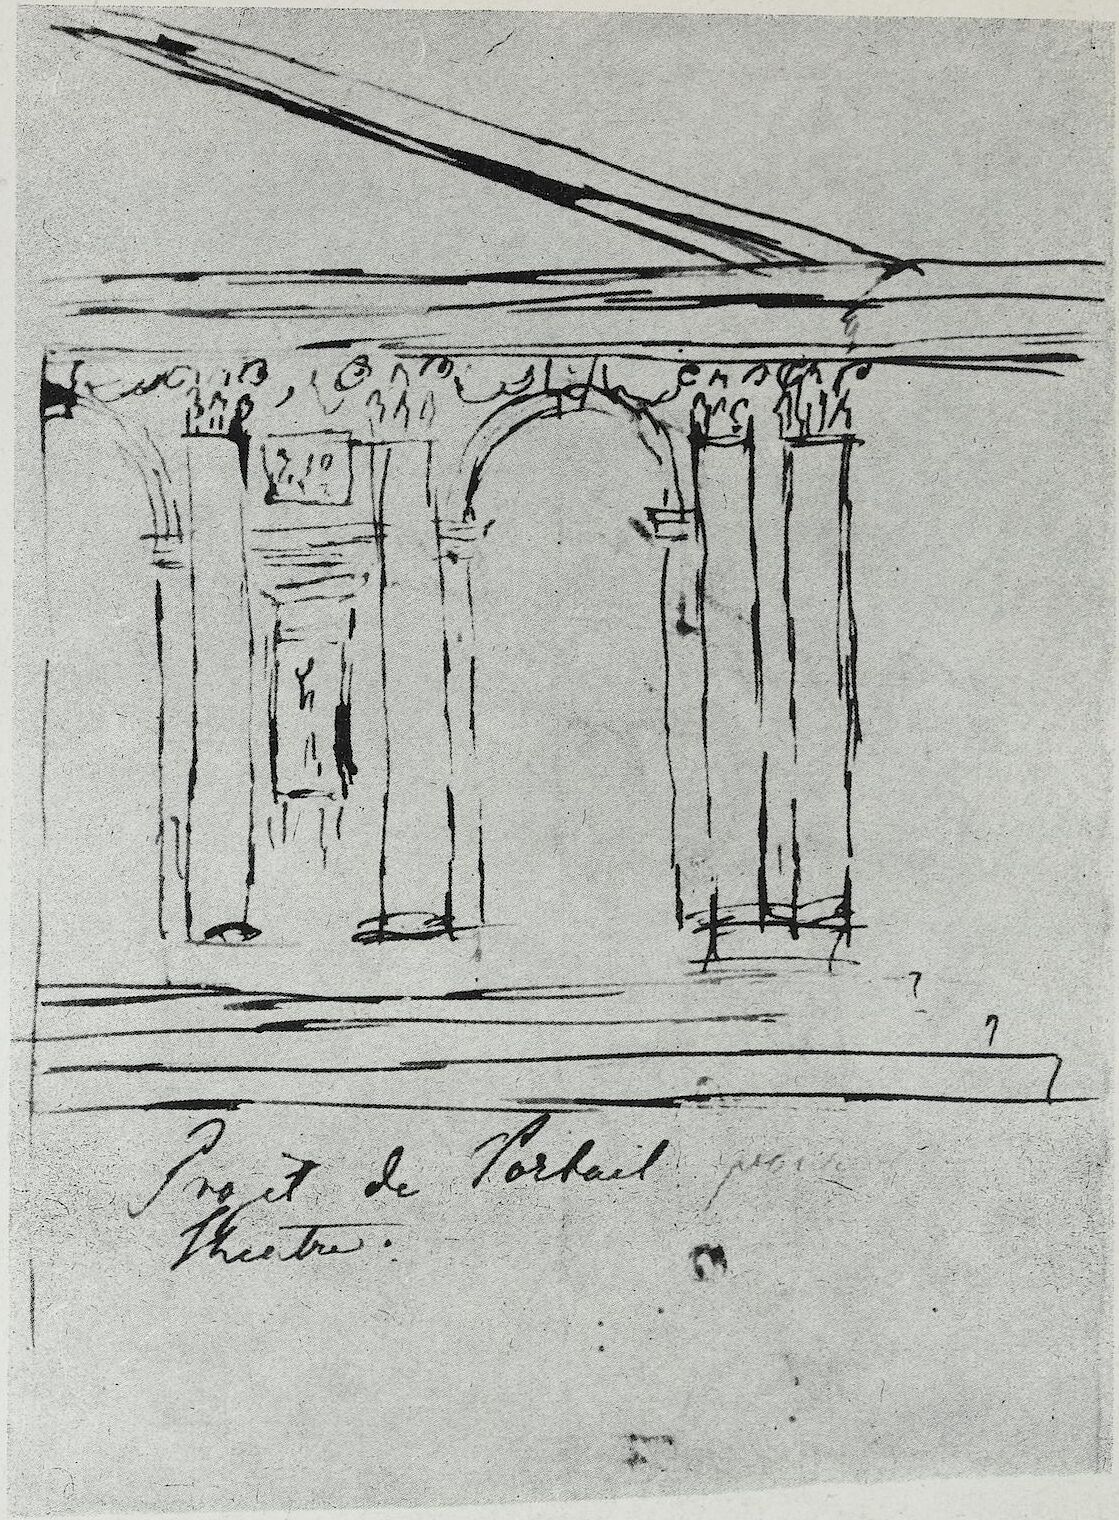 Projet de Portail
theatre.